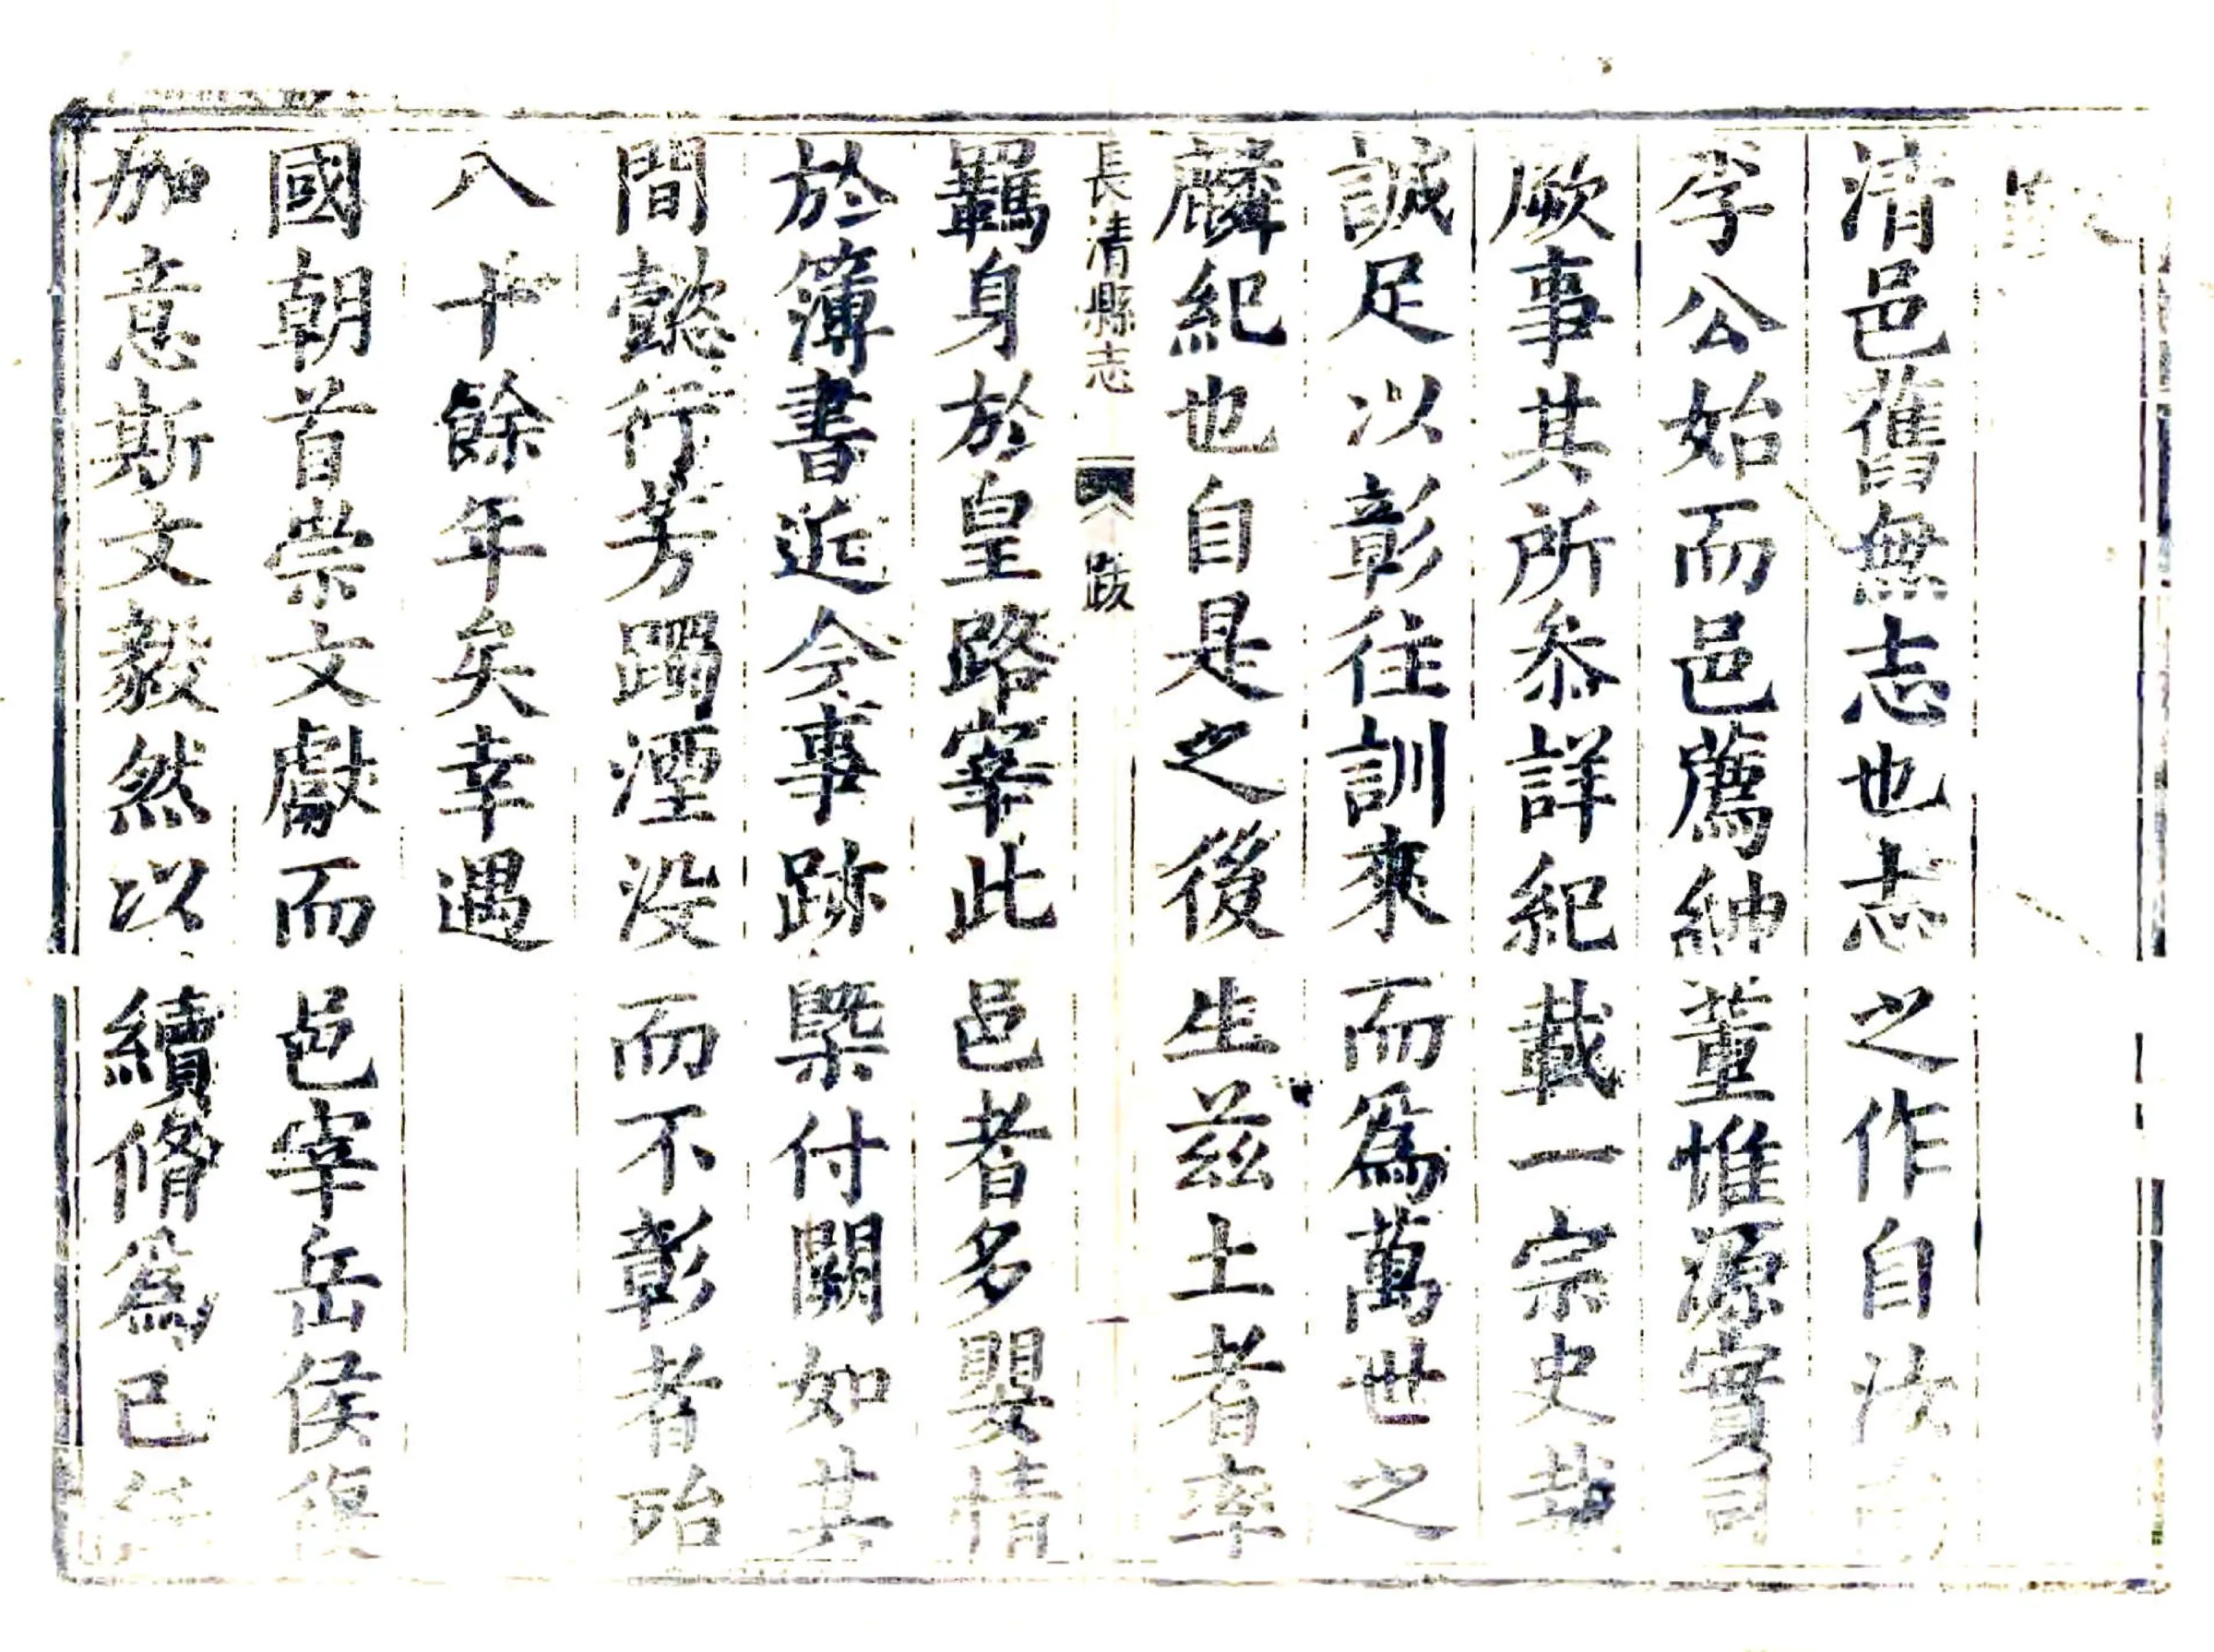 清邑舊無志也志之作自汝
李公始而邑薦紳董惟源實司
厥事其所叅詳紀載一宗史裁
誠足以彰往訓來而爲萬世之
麟紀也自是之後生茲土者率
長清縣志 跋 一
羈身於皇路宰此邑者多嬰情
於簿書近今事跡槩付闕如其
間懿行芳躅湮沒而不彰者殆
八十餘年矣幸遇
國朝首崇文獻而邑宰岳侯復
加意斯文毅然以續脩爲已任